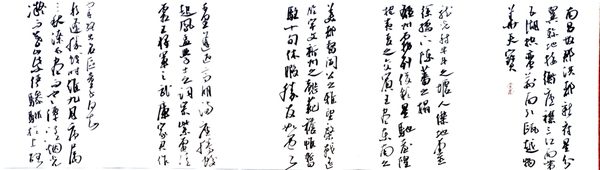 南昌故郡洪都新府星分
翼軫地接衡廬襟三江而帶
五湖控蠻荊而引甌越物
華天寶
龍光射牛斗之墟人傑地靈
徐孺下陳蕃之榻
雄州霧列俊彩星馳臺隍
枕夷夏之交賓主盡東南之
美都督閻公之雅望棨戟遙
臨宇文新州之懿範襜帷暫
駐十旬休暇勝友如雲千
里逢迎高朋滿座騰蛟
起鳳孟學士之詞宗紫電清
霜王將軍之武庫家君作
宰路出名區童子何知
躬逢勝餞時維九月序屬
三秋潦水盡而寒潭清煙光
凝而暮山紫儼驂騑於上路